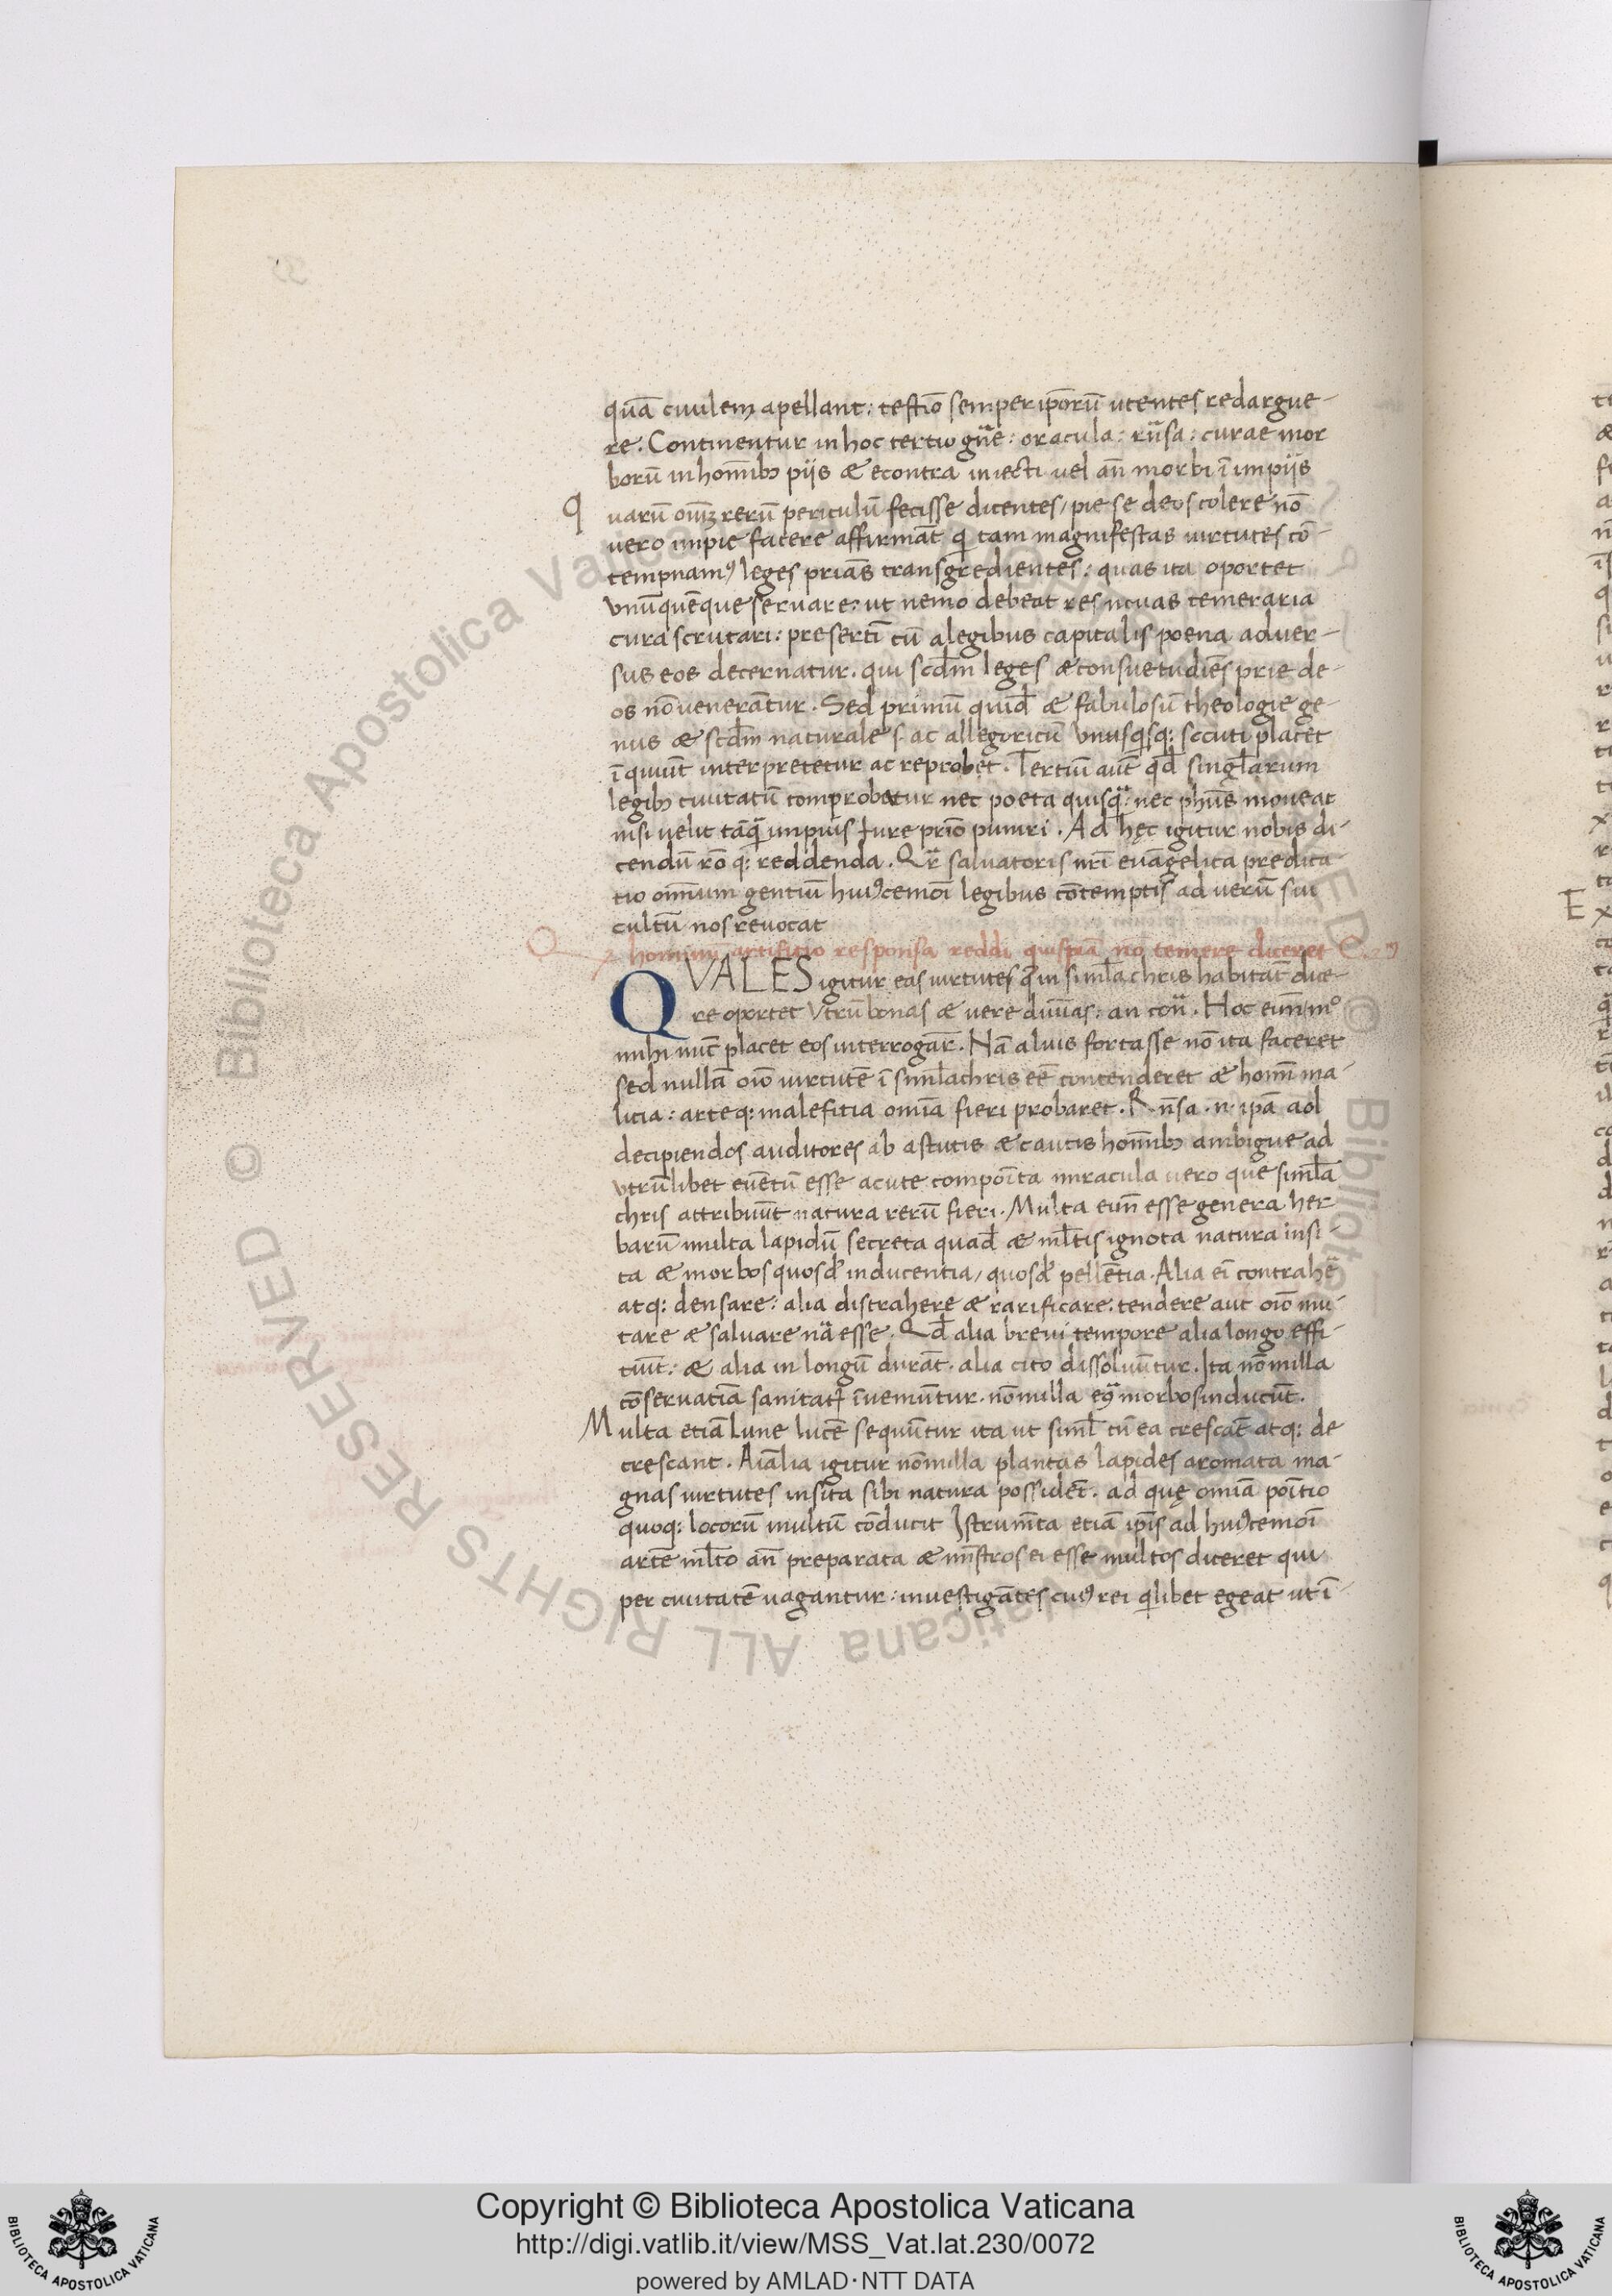 quā ciuilem apellant: testīo semper ip̄orū utentes redargue-
re. Continentur in hoc tertio gn̄e: oracula: rn̄sa: curae mor
borū in hoīnibꝫ piis & econtra iniecti uel an̄ morbi ī impiis
Quarū om̄iꝫ rerū periculū fecisse dicentes, pie se deos colere nō
uero impie facere affirmāt qi tam magnifestas uirtutes cō-
tempnamꝰ leges prias transgredientes: quas ita oportet
vnūquēque seruare: ut nemo debeat res nouas temeraria
cura scrutari: presertī cū a legibus capitalis poena aduer-
sus eos decernatur. qui scd̄m leges & consuetudiēs prie de-
os nō uenerātur. Sed primū quid̄ & fabulosū theologie ge-
nus & scd̄m naturale s. ac allegoricū vnusqisqꝫ siccuti placet
ī quiūt interpretetur ac reprobet. Tertiū aūt qd̄ singl̄arum
legibꝫ ciuitatū comprobetur nec poeta quisqꝫ: nec ph̄us moueat
nisi uelit tāqꝫ impius iure prīo puniri. Ad hęc igitur nobis di-
cendū rō qꝫ: reddenda. Qr̄ saluatoris nr̄i euāgelica predica-
tio omīum gentiū huiꝰcemoī legibus cōtemptis ad uerū sui
cultū nos reuocat
Q x hominū artificio responsa reddi quispiā nō temere diceret C.
QVALES igitur eas uirtutes q̄ in siml̄achris habitāt dice-
re oportet vtrū bonas & uere diuīas: an con̄. Hoc eīm mº
mihi nūc placet eos interrogar̄. Nā aliuis fortasse nō ita faceret
sed nullā oīo uirtutē ī siml̄achris eē contenderet & homī ma-
licia: arteqꝫ: malefitia omīa fieri probaret. R. n̄sa .n. ip̄a ad
decipiendos auditores ab astutis & cautis homībꝫ ambigue ad
vtrūlibet euētū esse acute compoīta miracula uero que siml̄a
chris attribuūt natura rerū fieri. Multa eīm esse genera her
barū multa lapidū secreta quad̄ & ml̄tis ignota natura insi-
ta & morbos quosd̄ inducentia, quosd̄ pellētia. Alia eī contrahē
atqꝫ: densare: alia distrahere & rarificare: tendere aut oīo mu-
tare & saluare nā esse. Qd̄ alia breui tempore alia longo effi-
ciūt: & alia in longū durāt. alia cito dissoluūtur. Ita nōnulla
cōseruatiā sanitatꝭ īueniūtur. nōnulla eꝫ morbos inducūt.
Multa etiā Lune lucē sequūtur ita ut siml̄ cū ea crescāt atqꝫ: de
crescant. Aīalia igitur nōnulla plantas lapides aromata ma-
gnas uirtutes insita sibi natura possidēt. ad quę omīa poītio
quoqꝫ: locorū multū cōducit Istrum̄ta etiā ip̄is ad huiꝰcemoī
artē ml̄to an̄ preparata & mīstros ei esse multos diceret qui
per ciuitatē uagantur: inuestigātes cuiꝰ rei qilibet egeat ut ī-
Copyright © Biblioteca Apostolica Vaticana
http://digi.vatlib.it/view/MSS_Vat.lat.230/0072
powered by AMLAD·NTT DATA